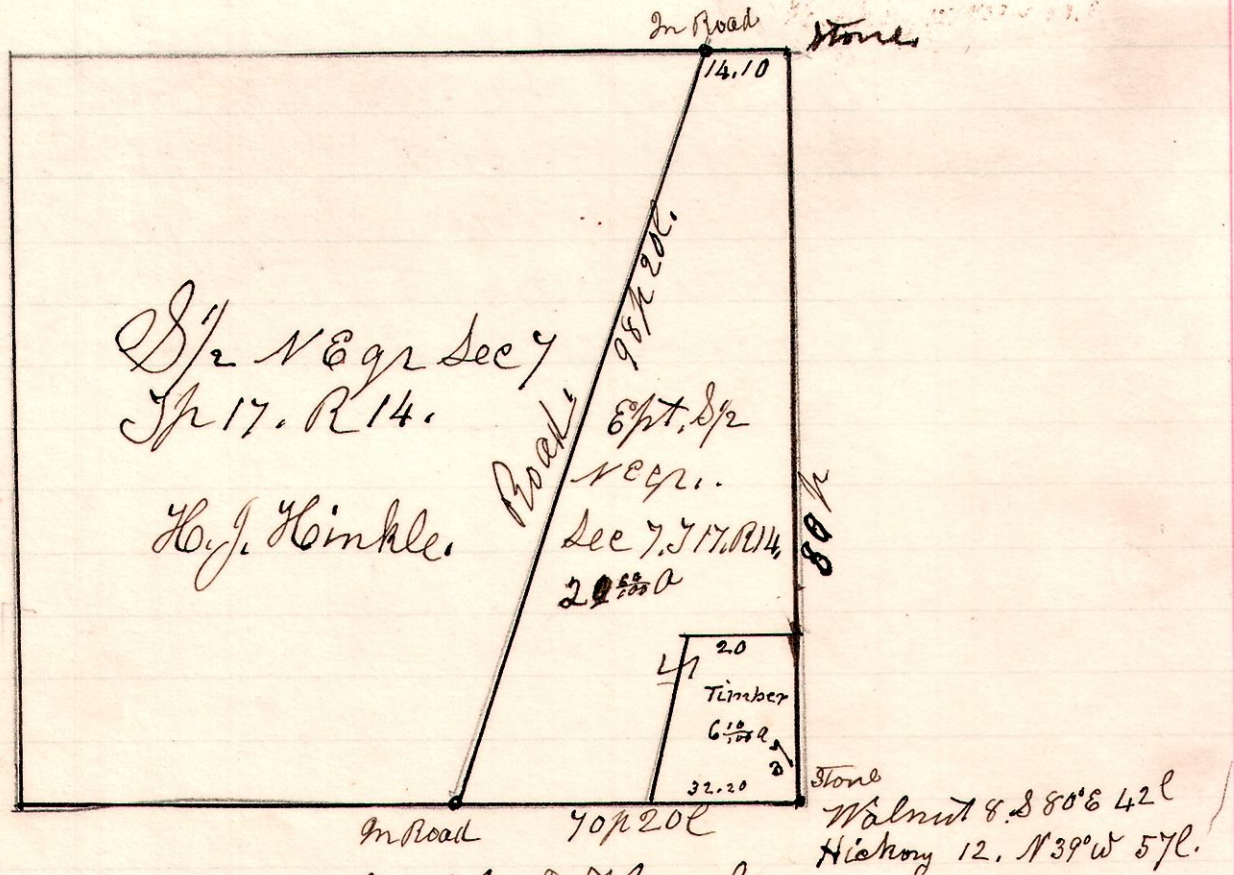 In Road
Stone
14.10
98p 20l.
Road.
S 1/2 N E qr Sec 7
Tp 17. R 14.
H. J. Hinkle.
E pt. S 1/2
N E qr.
Sec 7. T 17. R 14.
60/100 a
80 p
20
Timber
6 10/100 a
32.20
Stone
In Road
70p 20l
Walnut 8. S 80° E 42l
Hickory 12. N 39° W 57l.